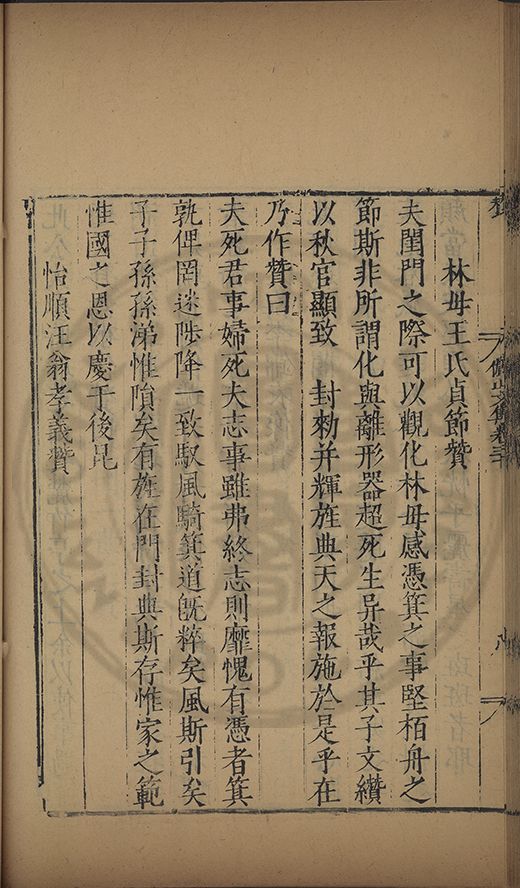 林母王氏貞節贊
夫閨門之際可以觀化林母感憑箕之事堅栢舟之
節斯非所謂化與離形器超死生异哉乎其子文纘
以秋官顯致　封勑并輝旌典天之報施於是乎在
乃作贊曰
夫死君事婦死夫志事雖弗終志則靡愧有憑者箕
孰俾罔迷陟降一致馭風騎箕道旣粹矣風斯引矣
子子孫孫涕惟隕矣有旌在門封典斯存惟家之範
惟國之恩以慶于後昆
怡順汪翁孝義贊